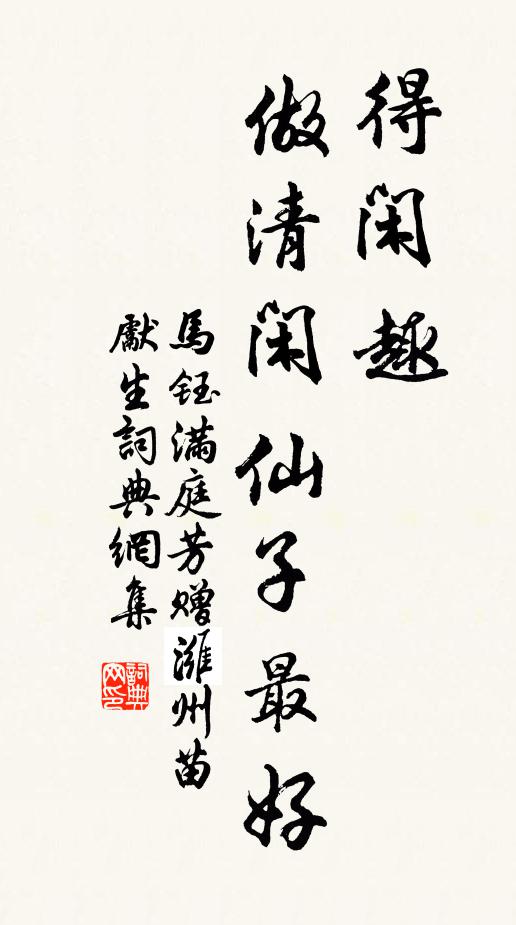 得閑趣
做清閑仙子最好
馬鈺滿庭芳贈濰州苗
獻生詞典網集
詞典
网印